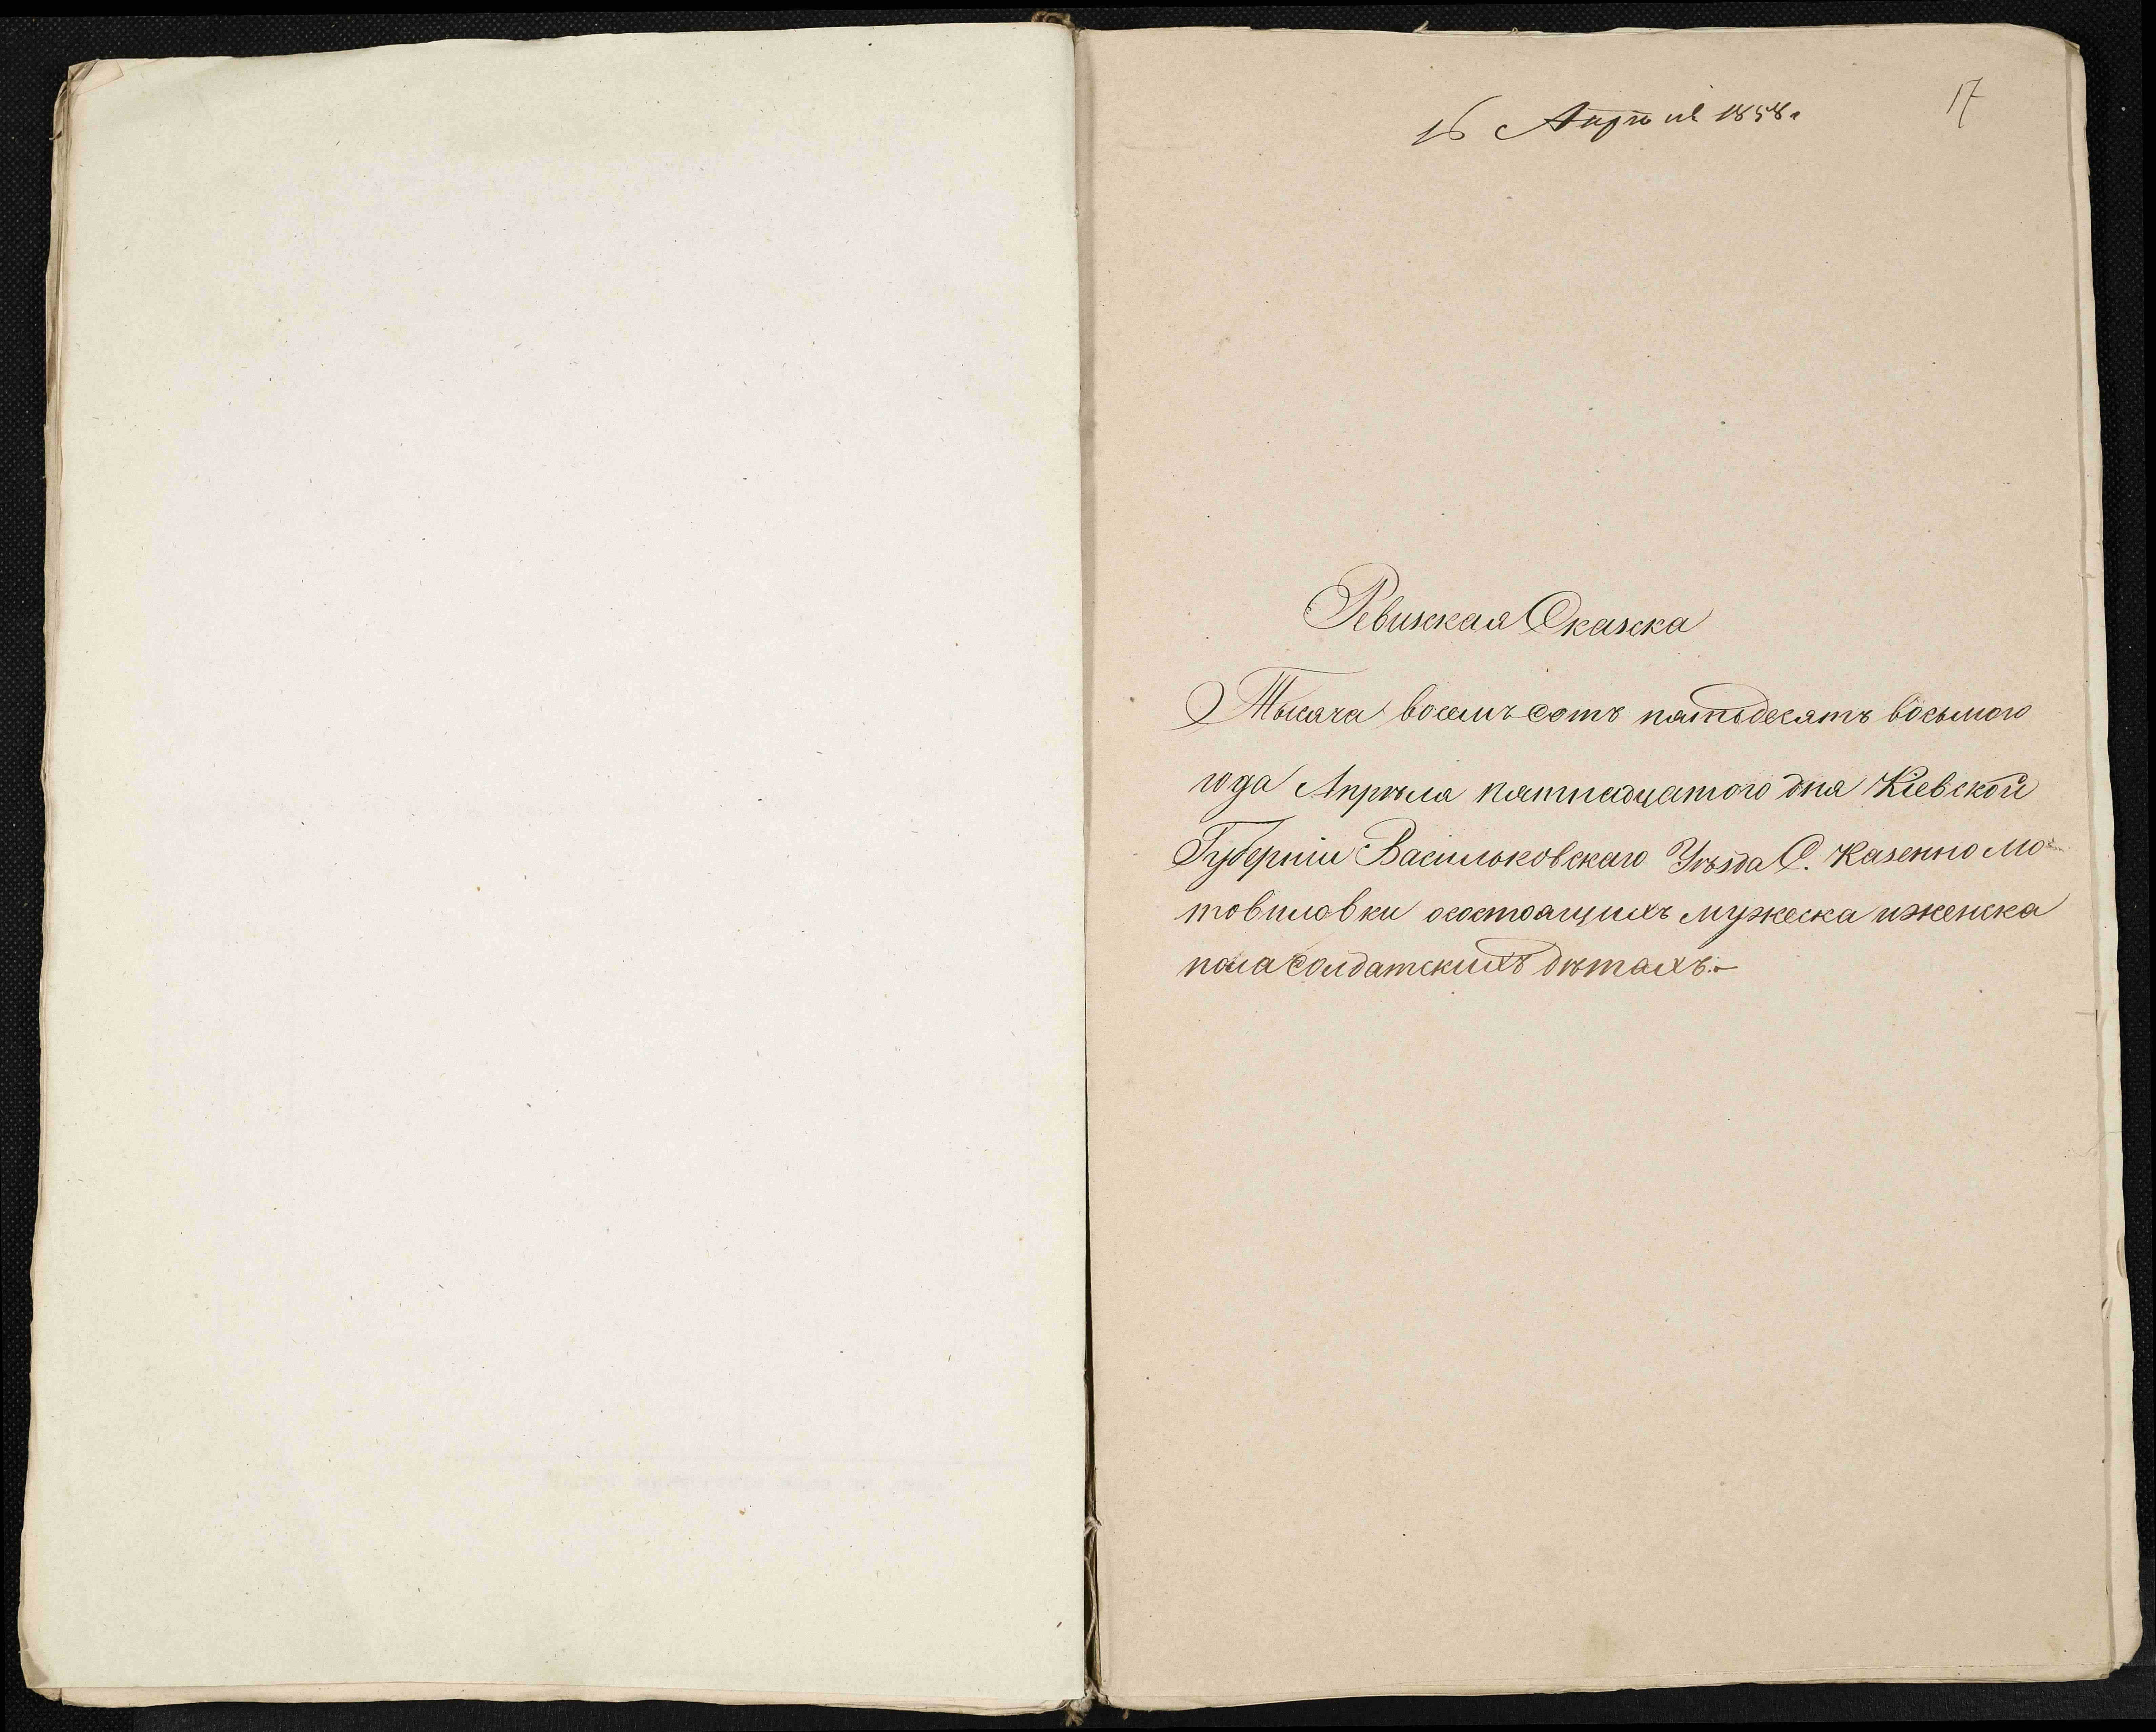 16 Апрѣля 1858 г.
17
Ревизская Сказка
Тысяча восемь сотъ пятьдесятъ восьмого
года Апрѣля пятнадцатого дня Кіевской
Губерніи Васильковскаго Уѣзда С. Казенно Мо-
товиловки осостоящихъ мужеска иженска
пола Солдатскихъ дѣтахъ.-